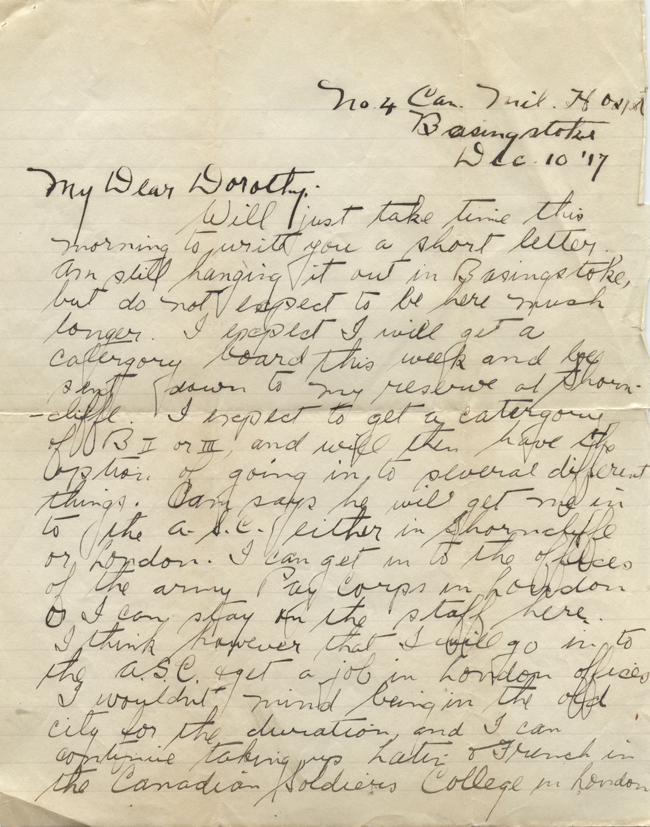 No. 4 Can. Mil. Hospt
Basingstoke
Dec. 10 '17
My Dear Dorothy:
Will just take time this
morning to write you a short letter.
Am still hanging it out in Basingstoke,
but do not expect to be here much
longer. I expect I will get a
catergory board this week and be
sent down to my reserve at Shorn-
-cliffe. I expect to get a catergory
of B II or III, and will then have the
option of going in to several different
things. says he will get me in
to the A.S.C. either in Shorncliffe
or London. I can get in to the offices
of the army Pay Corps in London
or I can stay on the staff here.
I think however that I will go in to
the A.S.C. & get a job in London offices
I wouldn't mind being in the old
city for the duration, and I can
continue taking up Latin & French in
the Canadian Soldiers College in London